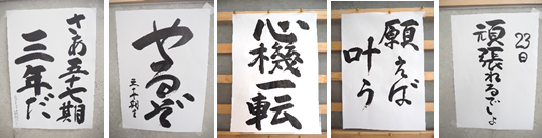 さあ五十七期
三年だ
やるぞ
心機一転
願えば
叶う
23日
頑張れるでしょ